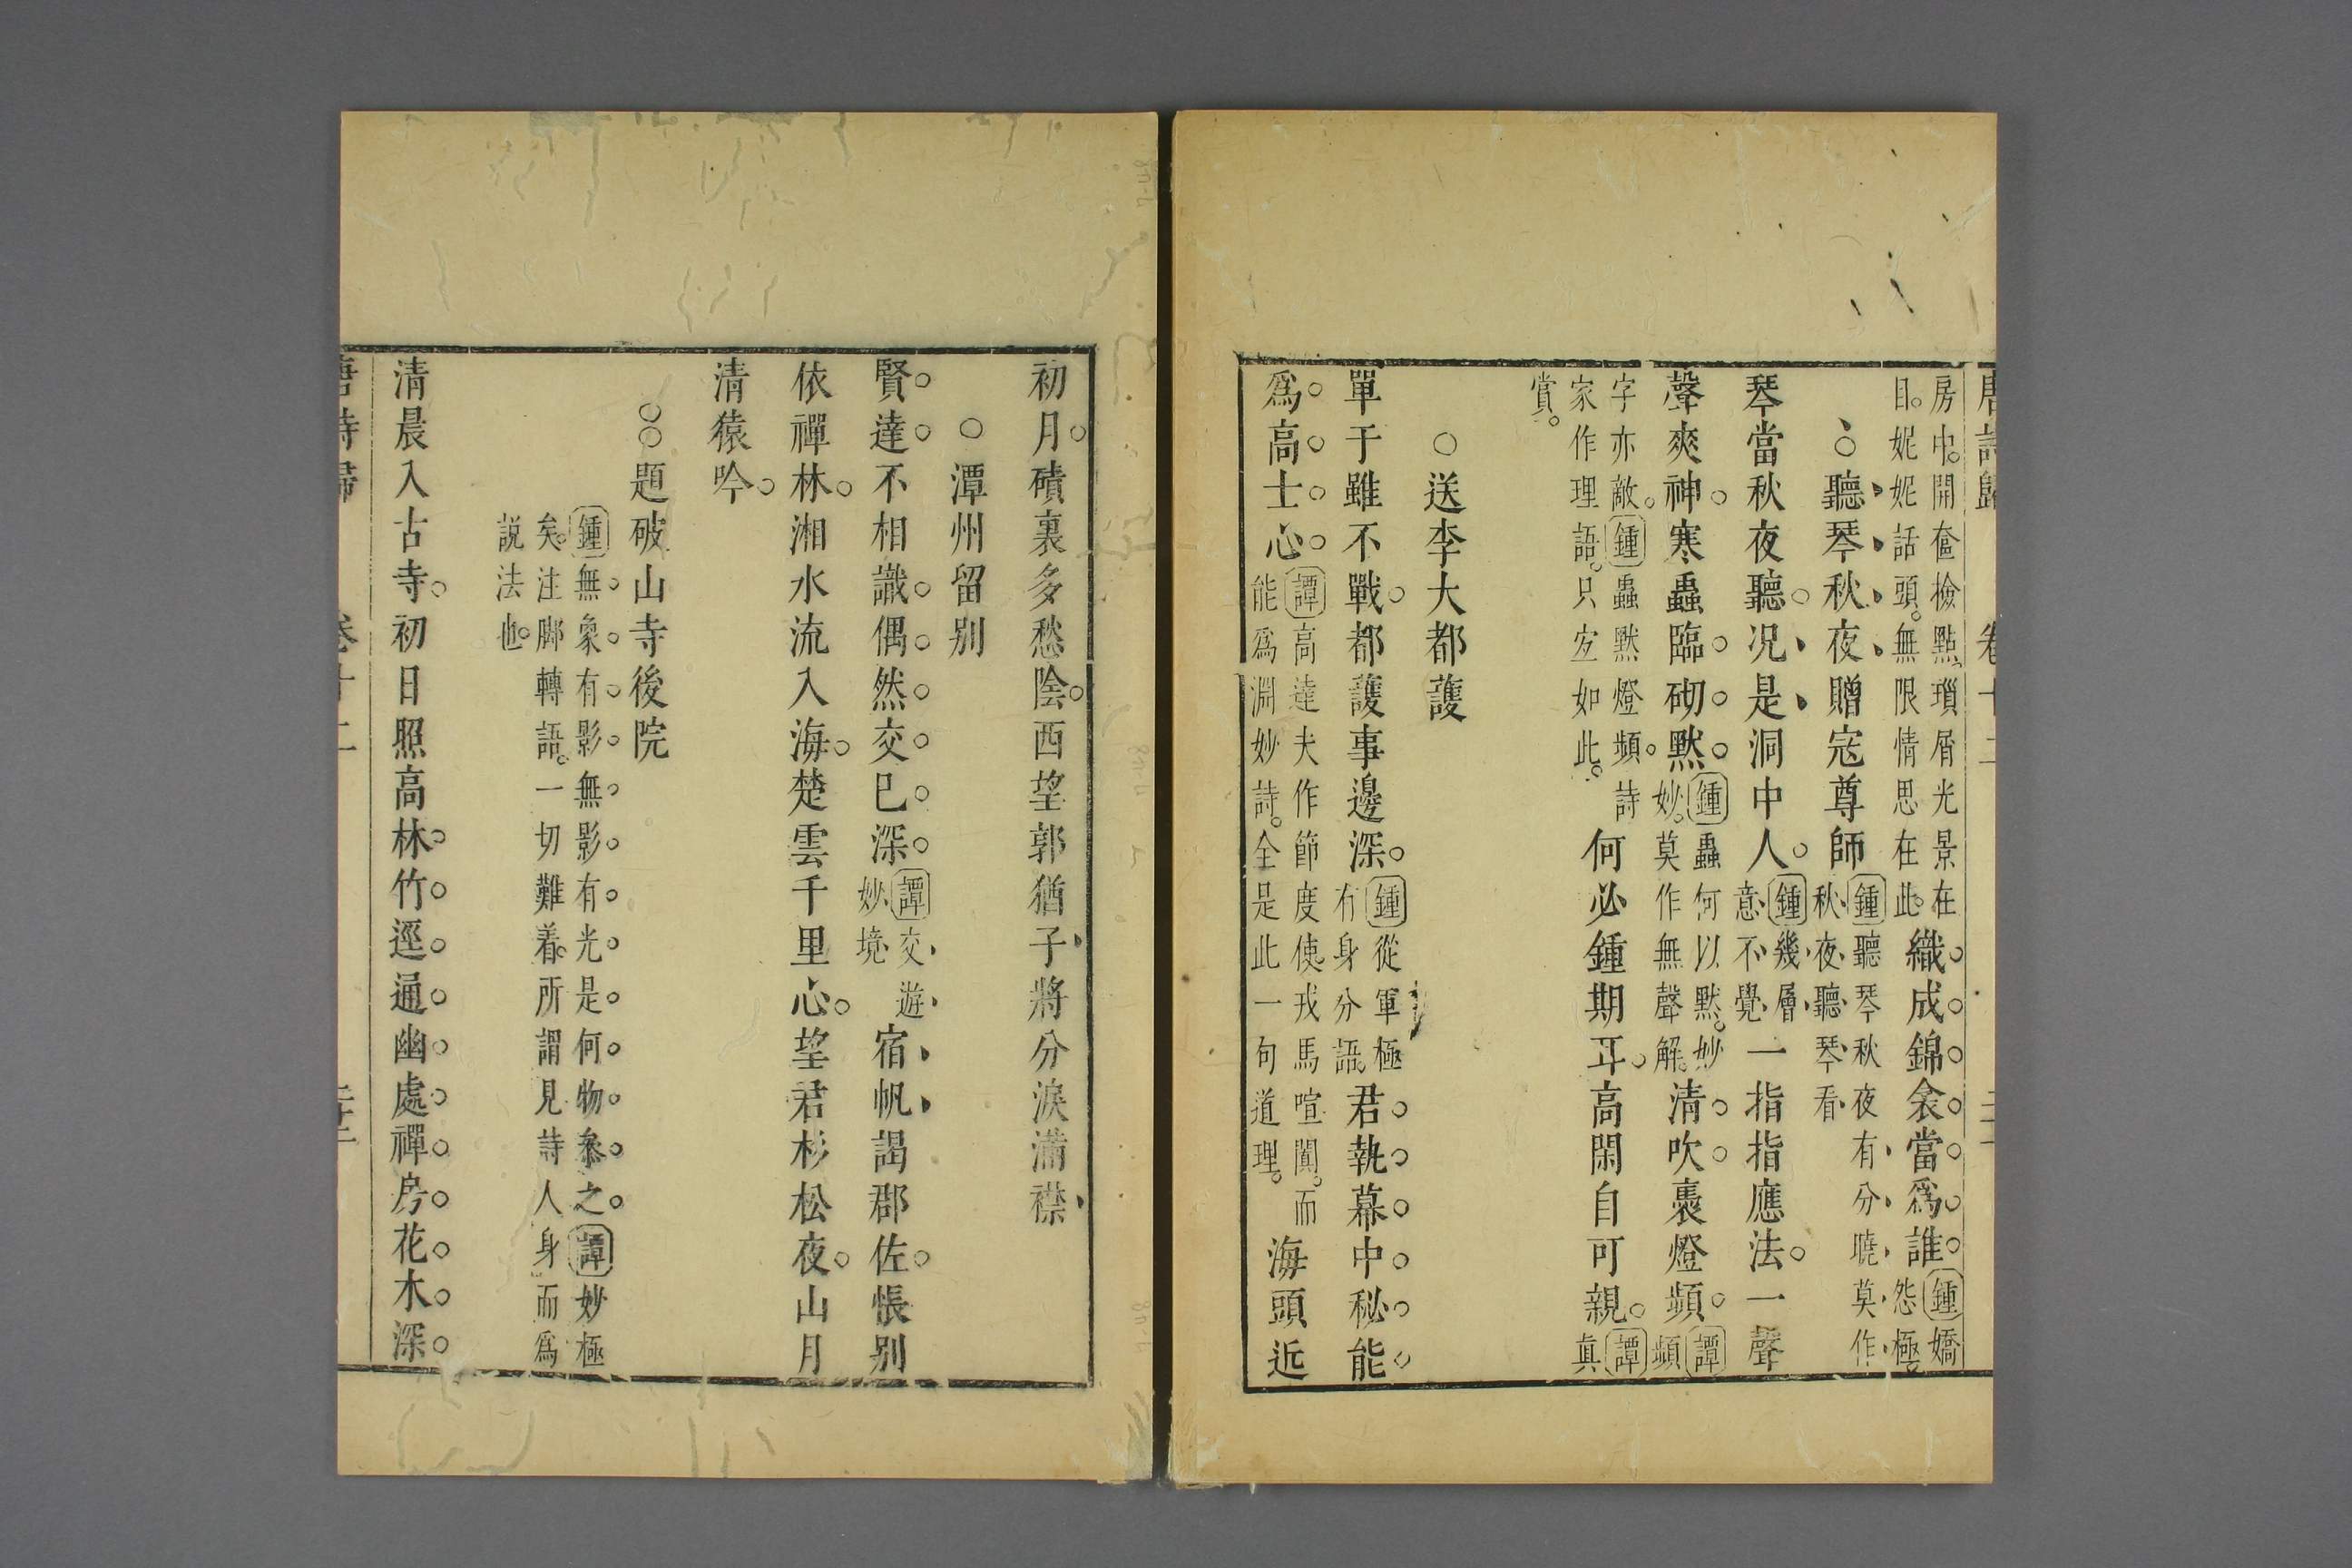 唐詩歸 卷十二
房中。開奩檢點、瑣屑光景在
目。妮妮話頭。無限情思在此。
織成錦衾當爲誰
鍾嬌
怨極。
聽琴秋夜贈寇尊師
鍾聽琴秋夜有分曉莫作
秋夜聽琴看
琴當秋夜聽況是洞中人
鍾幾層
意不覺
一指指應法一聲
聲爽神寒蟲臨砌默
鍾蟲何以默。妙
妙。莫作無聲解。
清吹裊燈頻
譚
頻
字亦敵。鍾蟲默燈頻詩
家作理語。只宜如此。
何必鍾期耳高閑自可親
譚
真
賞。
送李大都護
單于雖不戰都護事邊深
鍾從軍極
有身分語。
君執幕中秘能
爲高士心
譚高達夫作節度使戎馬喧闐。而
能爲淵妙詩。全是此一句道理。
海頭近
初月磧裏多愁陰西望郭猶子將分淚滿襟
潭州留別
賢達不相識偶然交已深
譚交遊
妙境
宿帆謁郡佐悵別
依禪林湘水流入海楚雲千里心望君杉松夜山月
清猿吟
題破山寺後院
鍾無象有影無影有光是何物參之譚妙極
矣。注脚轉語。一切難着。所謂見詩人身而爲
説法也。
清晨入古寺初日照高林竹逕通幽處禪房花木深
唐詩歸 卷十二